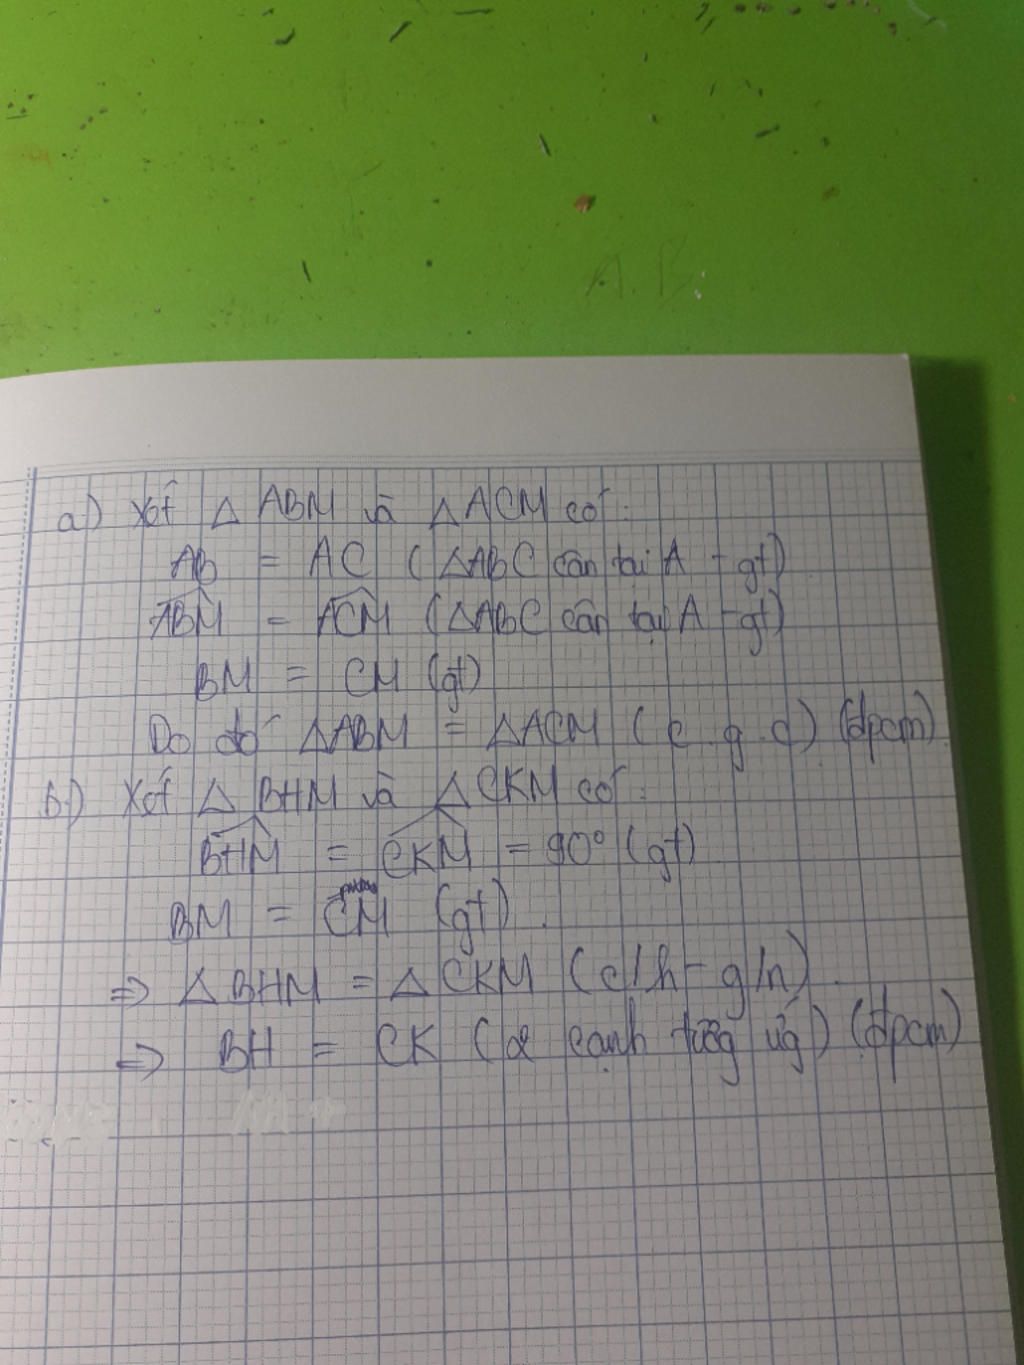 A.B
a) Xét △ ABM và △ ACM có:
AB = AC (△ABC cân tại A - gt)
ABM = ACM (△ABC cân tại A - gt)
BM = CM (gt)
Do đó △ABM = △ACM (c.g.c) (đpcm)
b) Xét △ BHM và △ CKM có:
BHM = CKM = 90° (gt)
BM = CM (gt).
⇒ △ BHM = △ CKM (c/h - g/n)
⇒ BH = CK (2 cạnh tương ứng) (đpcm)